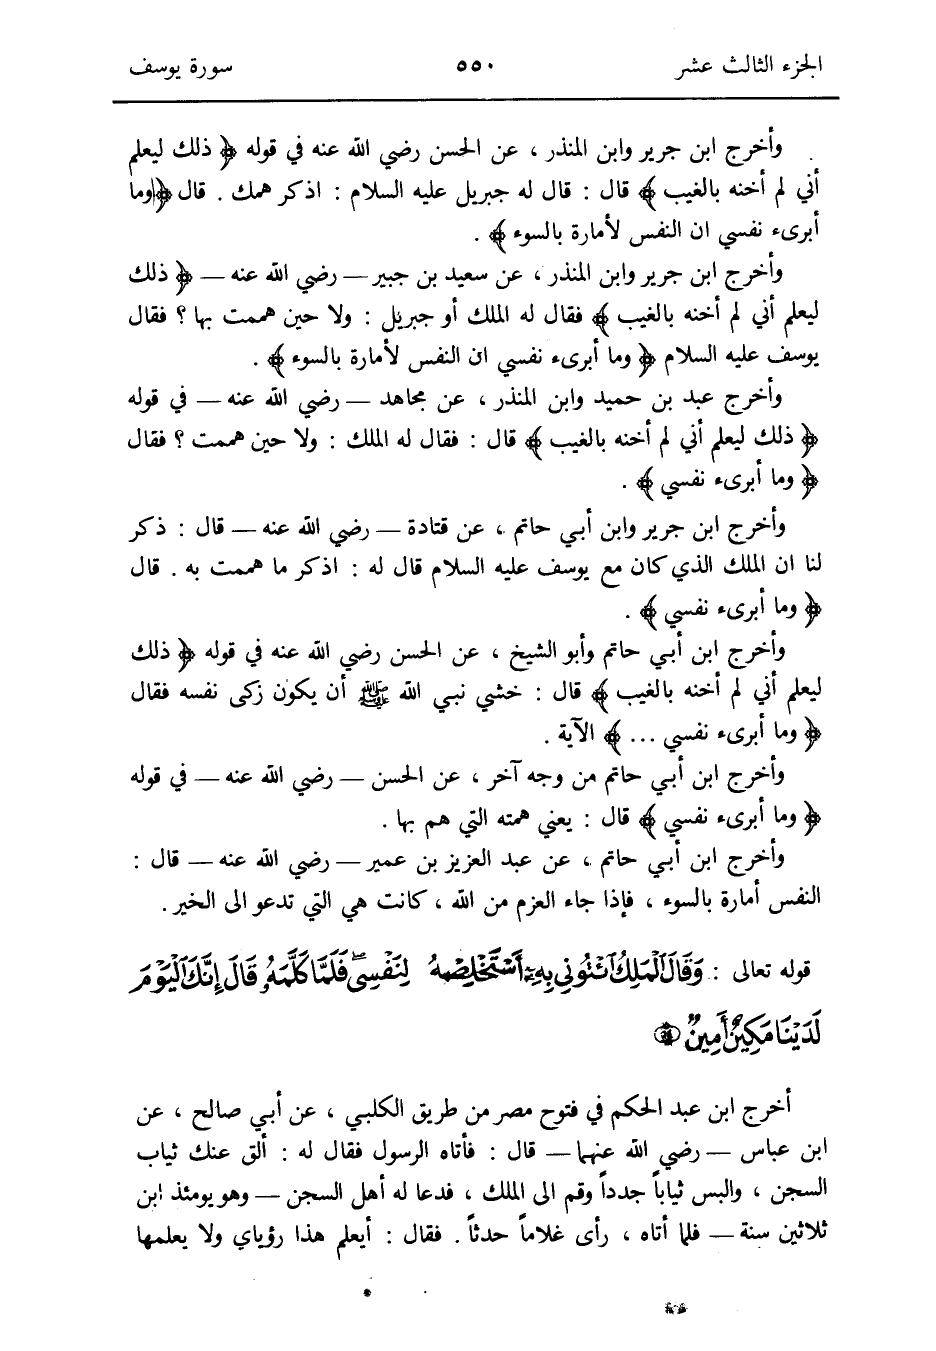 الجزء الثالث عشر ٥٥٠ سورة يوسف
وأخرج ابن جرير وابن المنذر ، عن الحسن رضي الله عنه في قوله ﴿ ذلك ليعلم
أني لم أخنه بالغيب ﴾ قال : قال له جبريل عليه السلام : اذكر همك . قال ﴿ وما
أبرىء نفسي ان النفس لأمارة بالسوء ﴾ .
وأخرج ابن جرير وابن المنذر ، عن سعيد بن جبير – رضي الله عنه – ﴿ ذلك
ليعلم أني لم أخنه بالغيب ﴾ فقال له الملك أو جبريل : ولا حين هممت بها ؟ فقال
يوسف عليه السلام ﴿ وما أبرىء نفسي ان النفس لأمارة بالسوء ﴾ .
وأخرج عبد بن حميد وابن المنذر ، عن مجاهد – رضي الله عنه – في قوله
﴿ ذلك ليعلم أني لم أخنه بالغيب ﴾ قال : فقال له الملك : ولا حين هممت ؟ فقال
﴿ وما أبرىء نفسي ﴾ .
وأخرج ابن جرير وابن أبي حاتم ، عن قتادة – رضي الله عنه – قال : ذكر
لنا ان الملك الذي كان مع يوسف عليه السلام قال له : اذكر ما هممت به . قال
﴿ وما أبرىء نفسي ﴾ .
وأخرج ابن أبي حاتم وأبو الشيخ ، عن الحسن رضي الله عنه في قوله ﴿ ذلك
ليعلم أني لم أخنه بالغيب ﴾ قال : خشي نبي الله ﷺ أن يكون زكى نفسه فقال
﴿ وما أبرىء نفسي ... ﴾ الآية .
وأخرج ابن أبي حاتم من وجه آخر ، عن الحسن – رضي الله عنه – في قوله
﴿ وما أبرىء نفسي ﴾ قال : يعني همته التي هم بها .
وأخرج ابن أبي حاتم ، عن عبد العزيز بن عمير – رضي الله عنه – قال :
النفس أمارة بالسوء ، فإذا جاء العزم من الله ، كانت هي التي تدعو الى الخير .
قوله تعالى : وَقَالَ ٱلْمَلِكُ ٱئْتُونِي بِهِۦٓ أَسْتَخْلِصْهُ لِنَفْسِى فَلَمَّا كَلَّمَهُۥ قَالَ إِنَّكَ ٱلْيَوْمَ
لَدَيْنَا مَكِينٌ أَمِينٌ ٥٤
أخرج ابن عبد الحكم في فتوح مصر من طريق الكلبي ، عن أبي صالح ، عن
ابن عباس – رضي الله عنهما – قال : فأتاه الرسول فقال له : ألق عنك ثياب
السجن ، والبس ثياباً جدداً وقم الى الملك ، فدعا له أهل السجن – وهو يومئذ ابن
ثلاثين سنة – فلما أتاه ، رأى غلاماً حدثاً . فقال : أيعلم هذا رؤياي ولا يعلمها